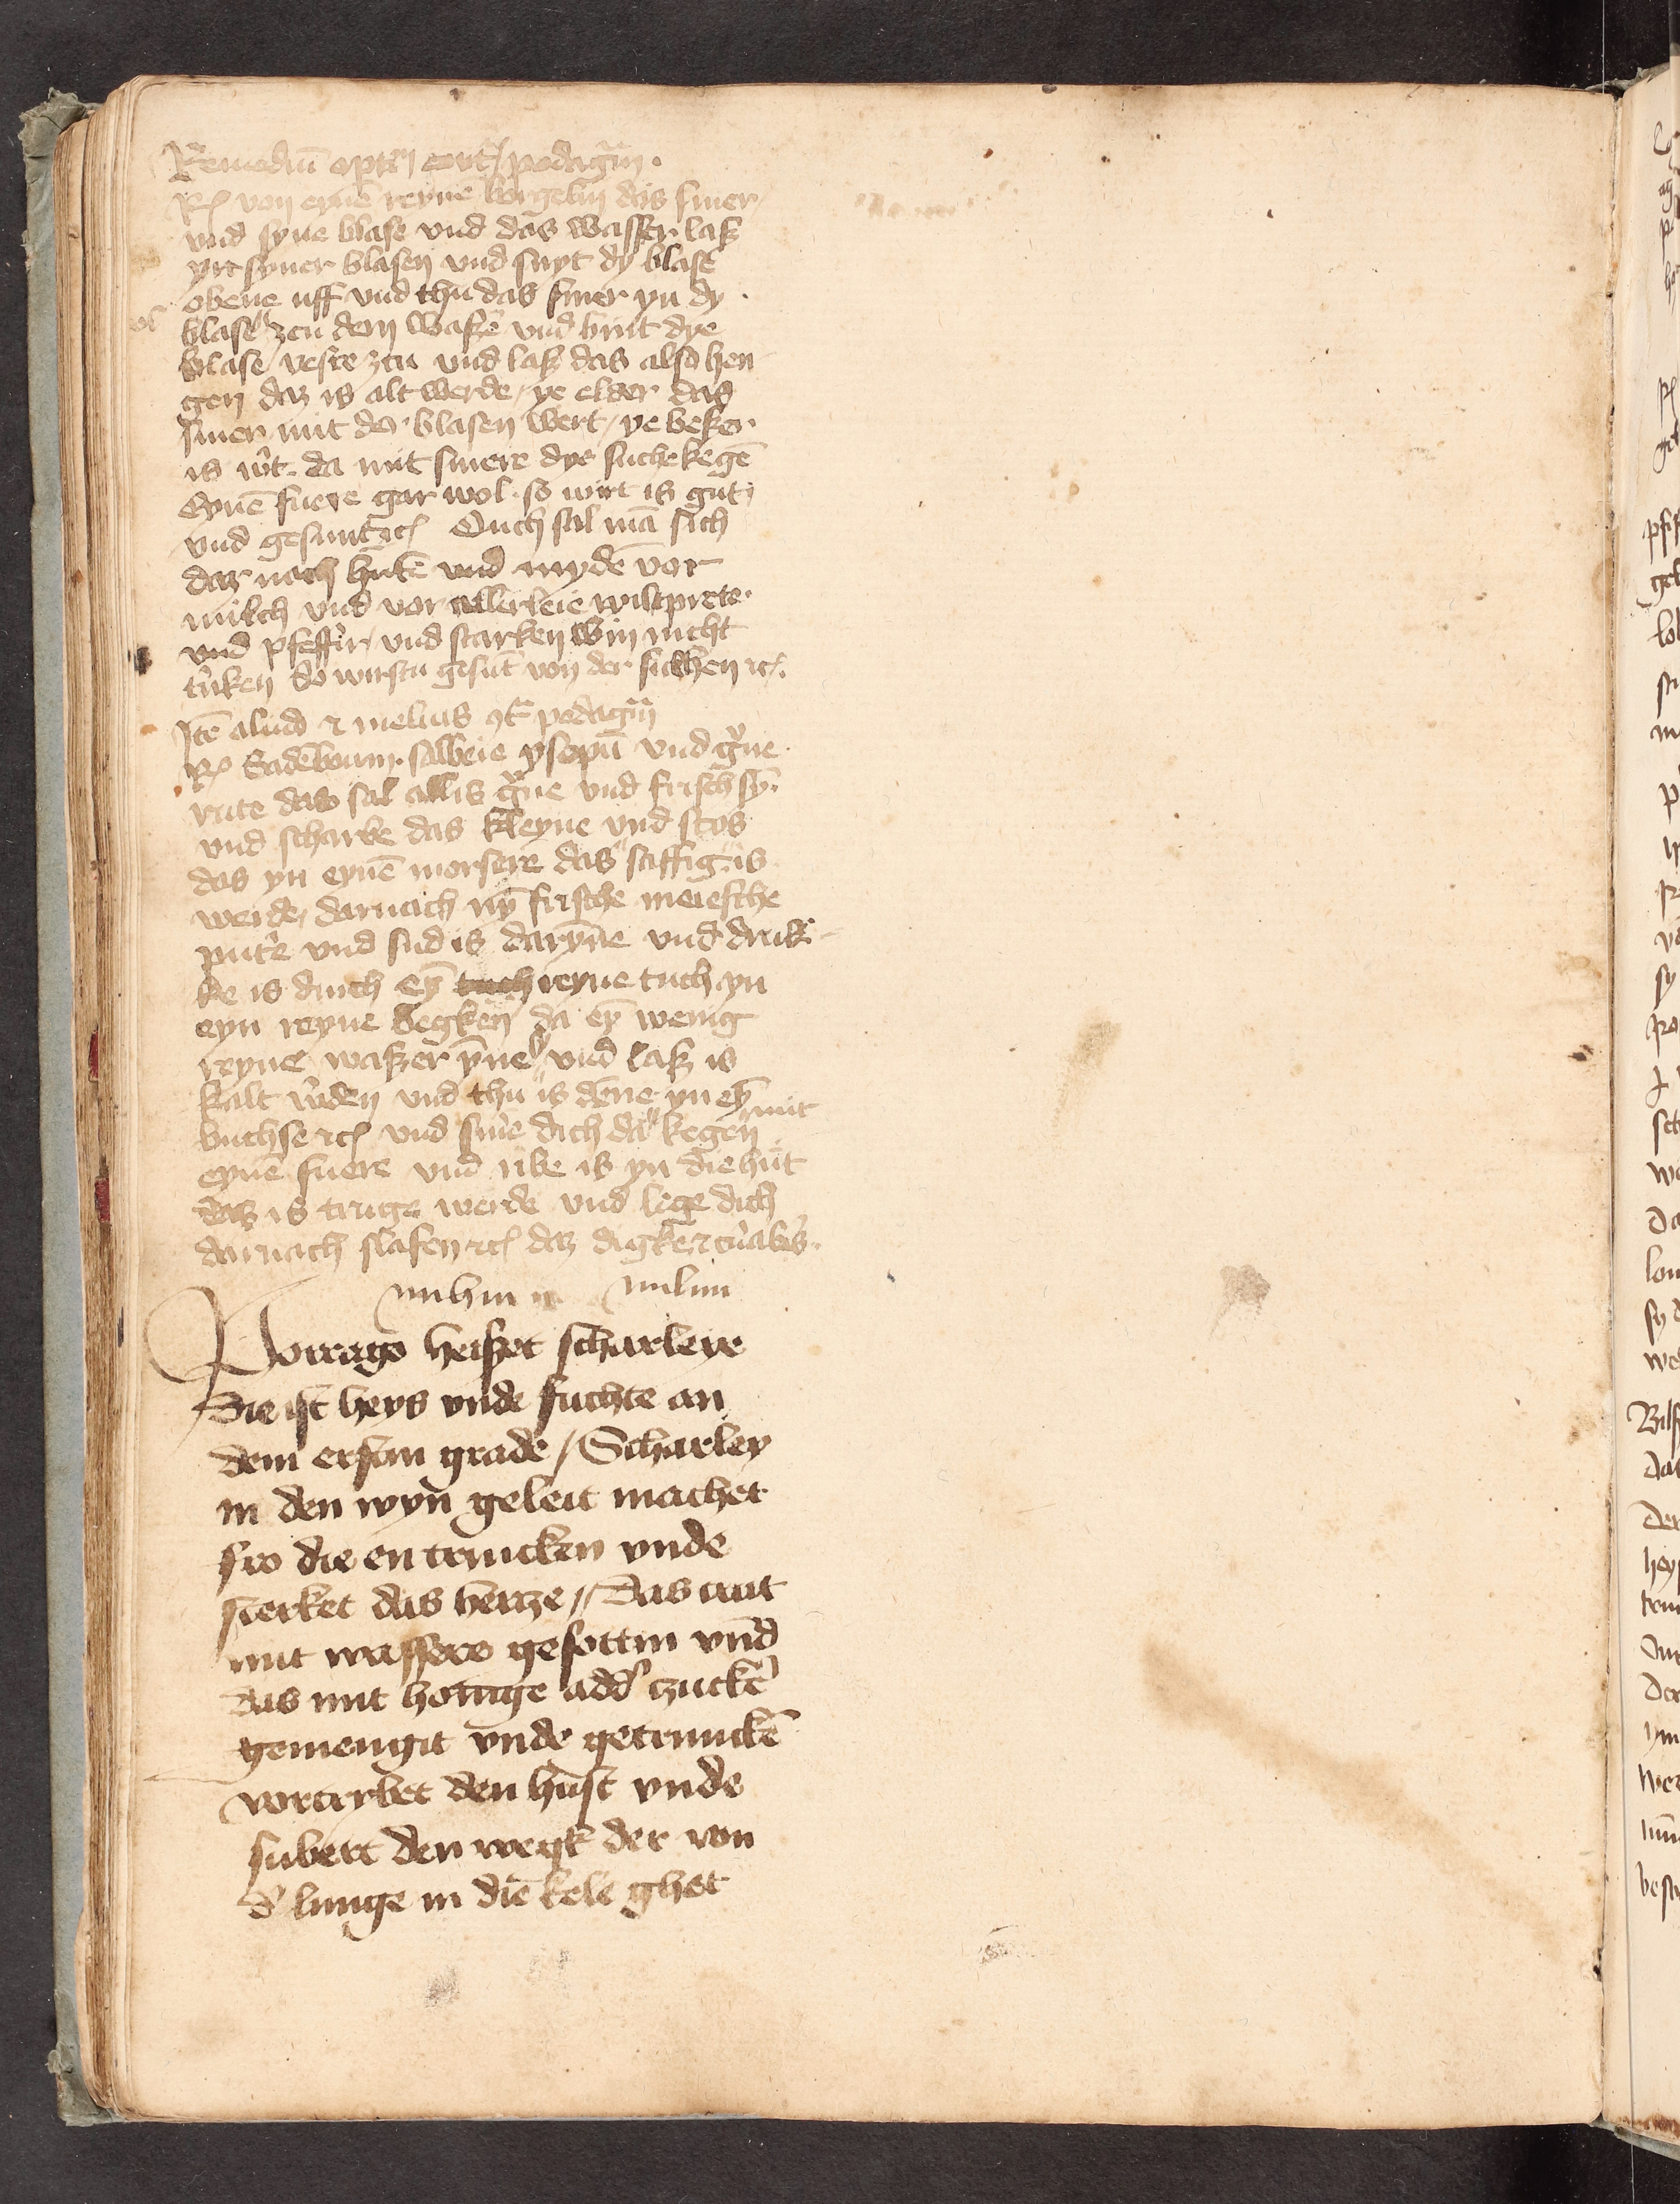 Remediū optim̄ contᷓ podagᷓm.
Rec̄ von eynē reyne borgelin das smer
vnd syne blase vnd das wasser laß
yn syner blasen vnd snyt dy blase
obene uff vnd thu das smer yn dy
blase zcu dem waßer̄ vnd bint dye
blase veste zcu vnd laß das also hen
gen daz is alt werde / ye elder das
smer mit der blasen wert / ye beßer
is w̄t. da mit smere dye suche kegē
Eynē fuere gar wol. so wirt is gut
vnd gesunt ⁊c̄ Ouch sal mā sich
dar noch hutē vnd mydē vor
milch vnd vor allerleie wiltprete.
vnd pfeffir / vnd starken win nicht
t'nken so wirstu gesūt von der suchen ⁊c̄.
Itē aliud ⁊ melius ꝯtᷓ podagᷓm
Rec̄ Sadēboum. salbeie ysopū vnd gͮne
rute das sal allis gͮne vnd frisch sȳ.
vnd scharbe das kleyne vnd stos
das yn eynē morsere das saffig is
werde / darnach nȳ frische meiesche
put'e vnd sud is darȳne vnd druk
ke is durch eȳ tuch reyne tuch yn
eyn reyne begken da eȳ wenig
reyne waßer ȳne sy vnd laß is
kalt w'den vnd thu is dēne yn eȳ
buchse ⁊c̄ vnd sm'e dich da mit kegen
eynē fuere vnd ribe is yn die hut
das is truge werde vnd lege dich
darnach slafen ⁊c̄ daz digke ⁊
Porrago heißet scharleye
Die ist heys vnde fuchte an
dem ersten grade / Scharley
in den wyn geleit machet
fro die en trincken vnde
sterket das hertze // Das crut
mit wassere gesottin vnd
das mit honige add' czuck'e
gemengit vnde getrunckē
vortrybet den hust vnde
subert den wegk der von
d' lunge in die kele ghet